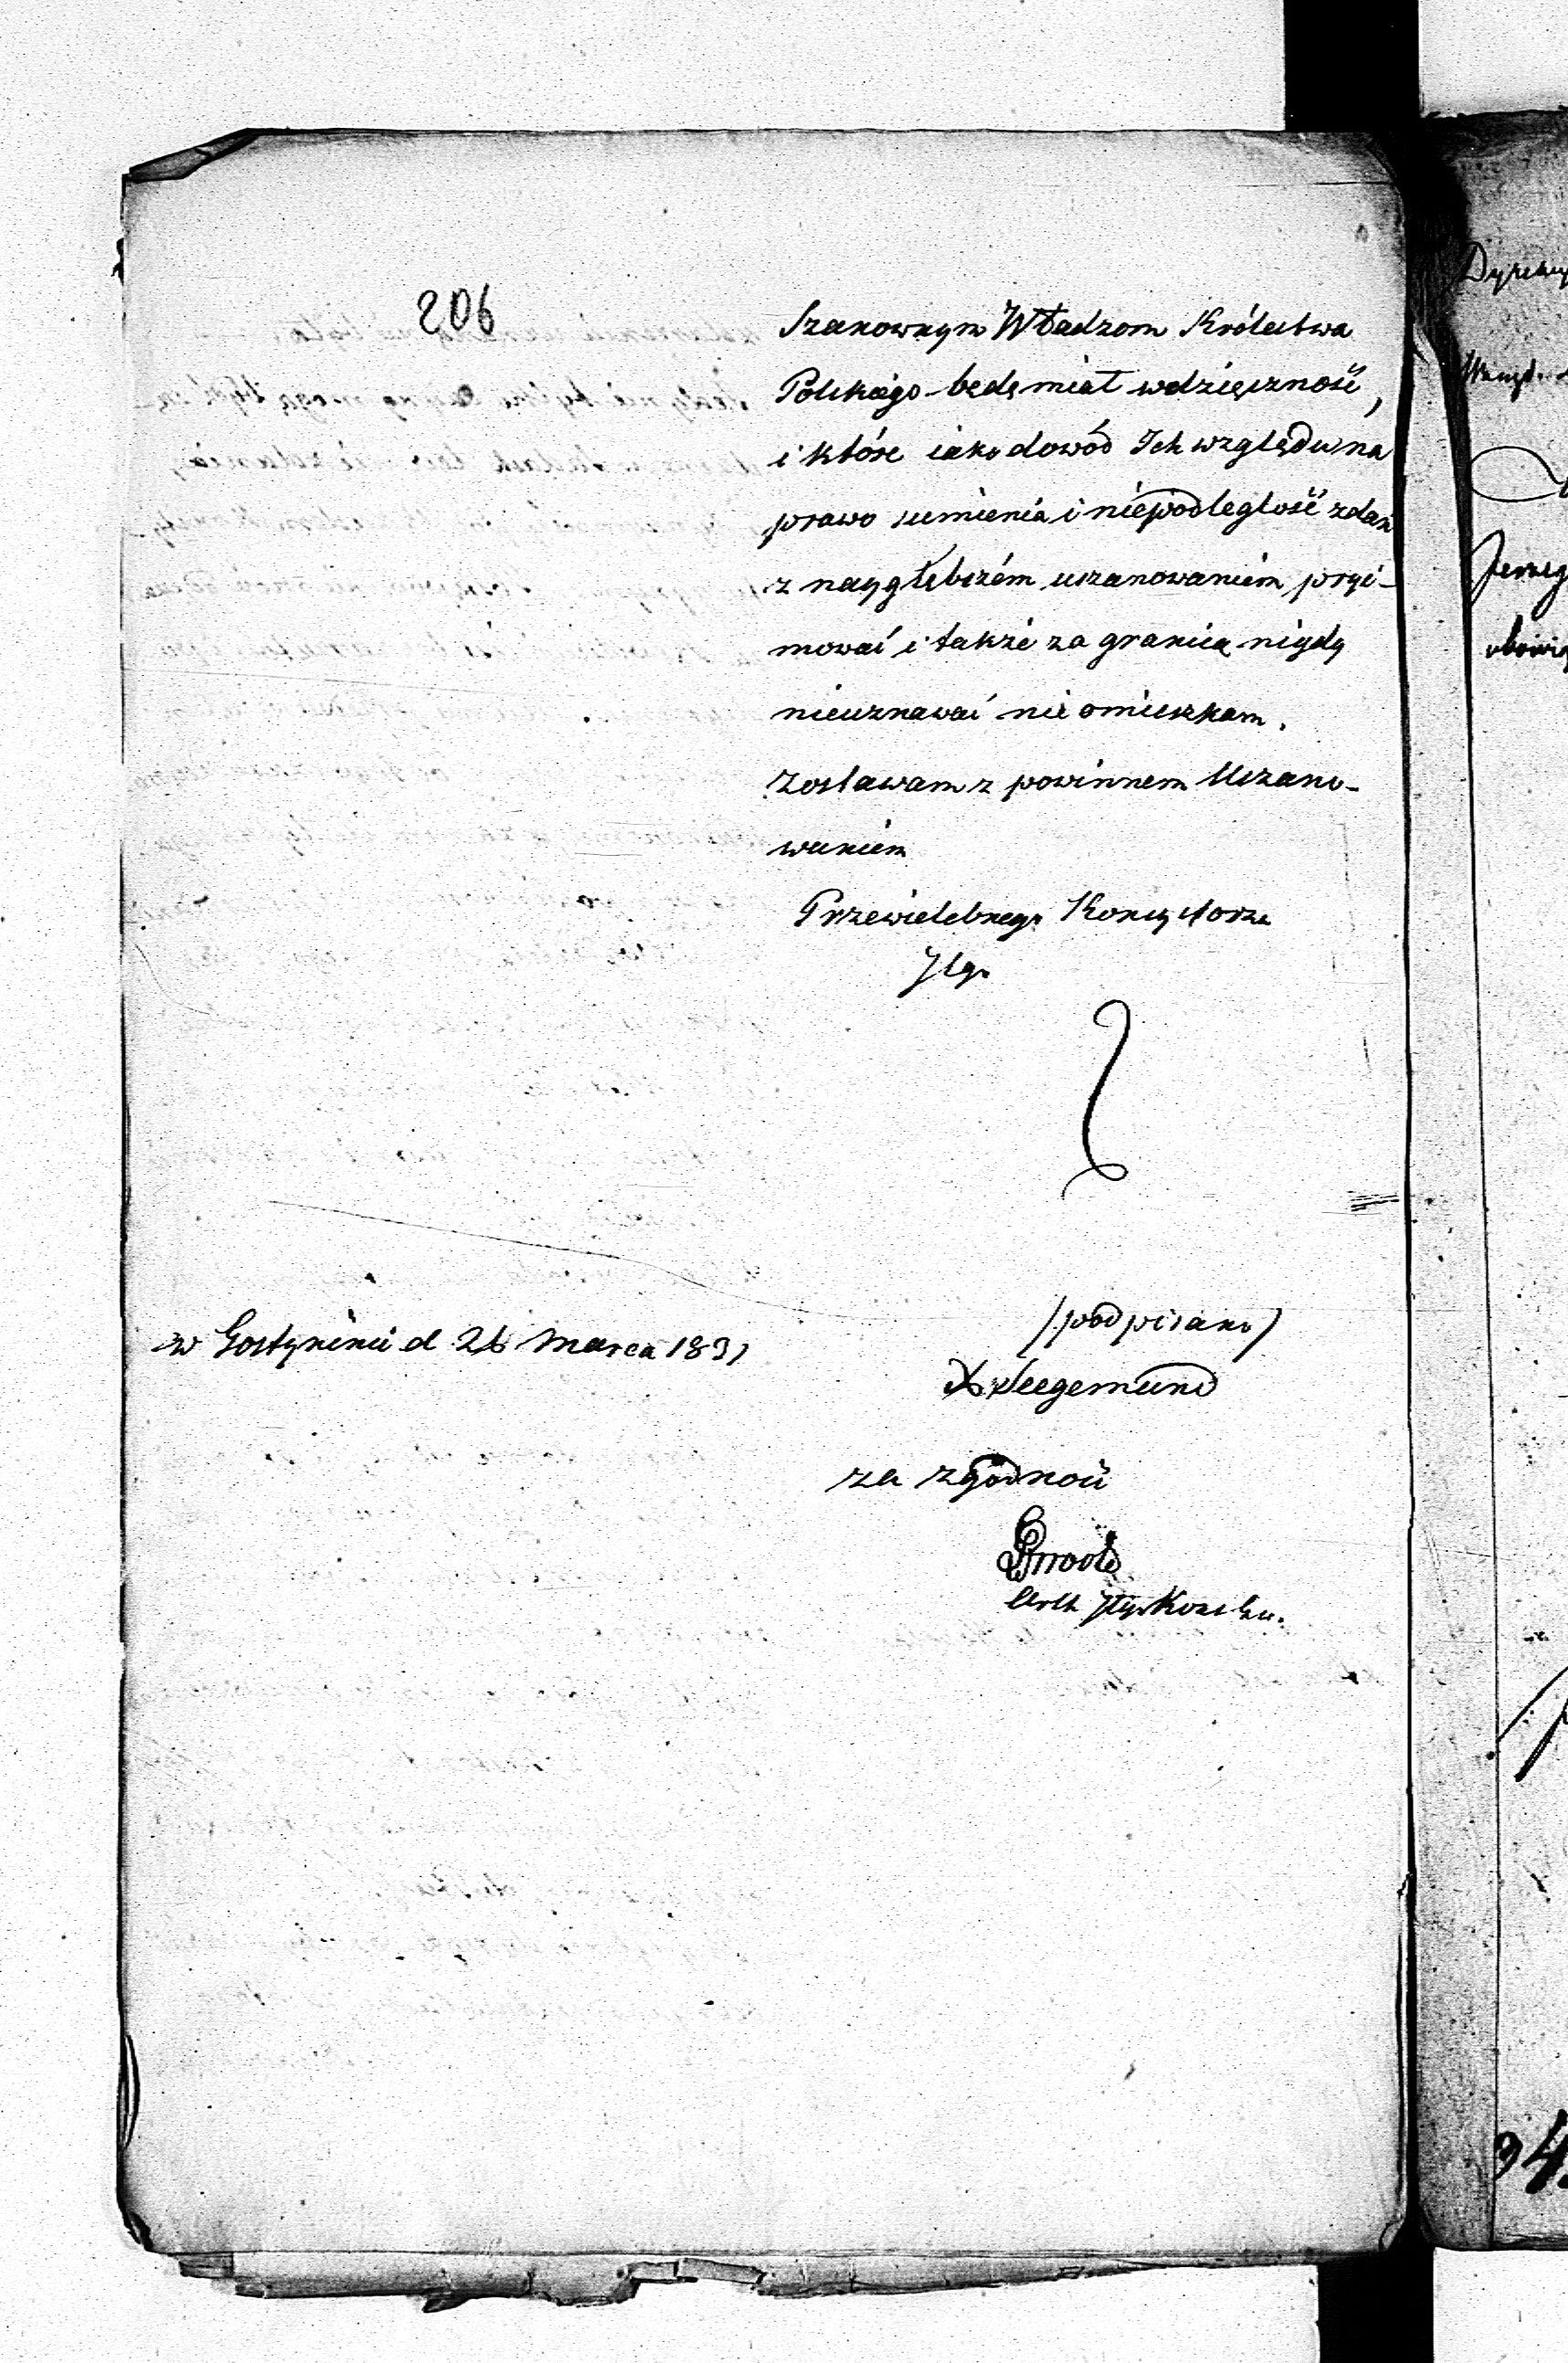 206
Szanownym Władzom Królestwa
Polskiégo będę miał wdzięczność,
i które iako dowód Ich względu na
prawo sumienia i niépodległość zdań
z naygłębszém uszanowaniém przyi-
mować i także za granicą nigdy
nieuznawać nie omieszkam.
Zostawam z powinnem Uszano-
waniém
Przewielebnego Konsystorza
w Gostyninie d. 26 Marca 1831
/podpisano/
X Seegemund
za zgodność